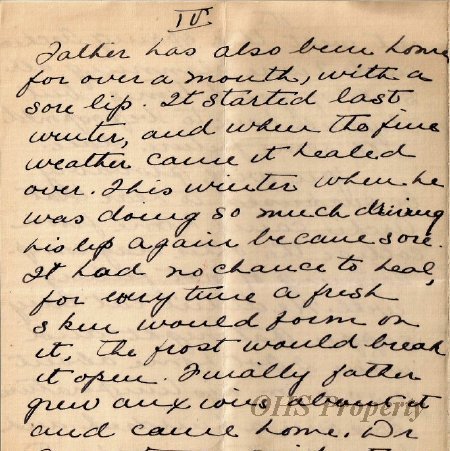 IV
Father has also been home
for over a month, with a
sore lip. It started last
winter, and when the fine
weather came it healed
over. This winter when he
was doing so much driving
his lip again became sore.
It had no chance to heal,
for every time a fresh
skin would form on
it, the frost would break
it open. Finally father
grew anxious about it
OHS Property
and came home. Dr